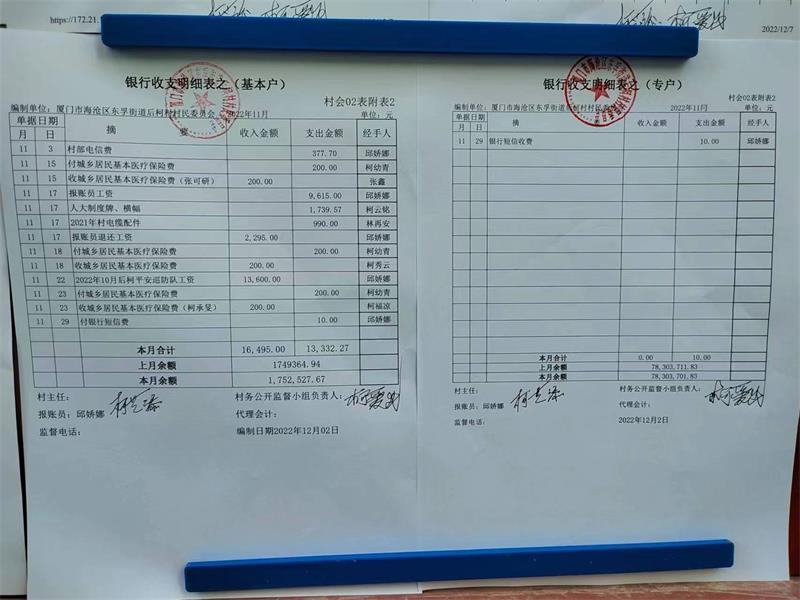 https://172.21.
2022/12/7
银行收支明细表之（基本户）
村会02表附表2
编制单位：厦门市海沧区东孚街道后柯村村民委员会 2022年11月 单位：元
单据日期 摘 要 收入金额 支出金额 经手人
月 日
11 3 村部电信费 377.70 邱娇娜
11 15 付城乡居民基本医疗保险费 200.00 柯幼青
11 15 收城乡居民基本医疗保险费（张可研） 200.00 张鑫
11 17 报账员工资 9,615.00 邱娇娜
11 17 人大制度牌、横幅 1,739.57 柯云铭
11 17 2021年村电缆配件 990.00 林再安
11 17 报账员退还工资 2,295.00 邱娇娜
11 18 付城乡居民基本医疗保险费 200.00 柯幼青
11 18 收城乡居民基本医疗保险费 200.00 柯秀云
11 22 2022年10月后柯平安巡防队工资 13,600.00 邱娇娜
11 23 付城乡居民基本医疗保险费 200.00 柯幼青
11 23 收城乡居民基本医疗保险费（柯承旻） 200.00 柯福凉
11 29 付银行短信费 10.00 邱娇娜
本月合计 16,495.00 13,332.27
上月余额 1749364.94
本月余额 1,752,527.67
村主任： 村务公开监督小组负责人：
报账员：邱娇娜 代理会计：
监督电话： 编制日期2022年12月02日
银行收支明细表之（专户）
村会02表附表2
编制单位：厦门市海沧区东孚街道后柯村村民委员会 2022年11月 单位：元
单据日期 摘 要 收入金额 支出金额 经手人
月 日
11 29 银行短信收费 10.00 邱娇娜
本月合计 0.00 10.00
上月余额 78,303,711.83
本月余额 78,303,701.83
村主任： 村务公开监督小组负责人：
报账员：邱娇娜 代理会计：
监督电话： 2022年12月2日